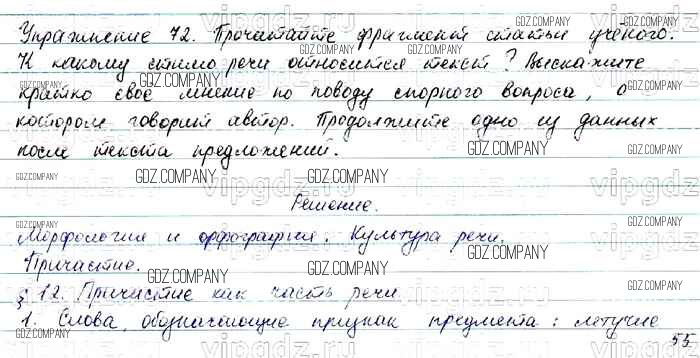 Упражнение 72. Прочитайте фрагмент статьи учёного.
К какому стилю речи относится текст? Выскажите
кратко своё мнение по поводу спорного вопроса, о
котором говорит автор. Продолжите одно из данных
после текста предложений.
Решение.
Морфология и орфография. Культура речи.
Причастие.
§ 12. Причастие как часть речи
1. Слова, обозначающие признак предмета: летучие
55
GDZ.COMPANY
vipgdz.ru